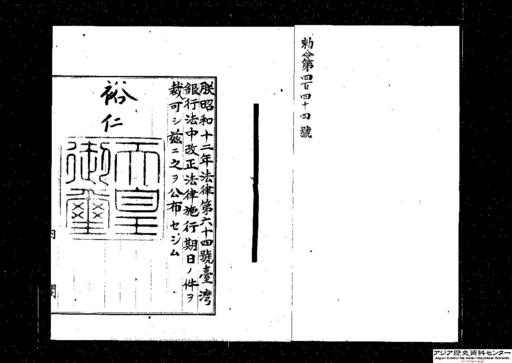 勅令第四百四十四號
朕昭和十二年法律第六十四號臺灣
銀行法中改正法律施行期日ノ件ヲ
裁可シ茲ニ之ヲ公布セシム
裕仁
天皇
御璽
内
閣
アジア歴史資料センター
Japan Center for Asian Historical Records